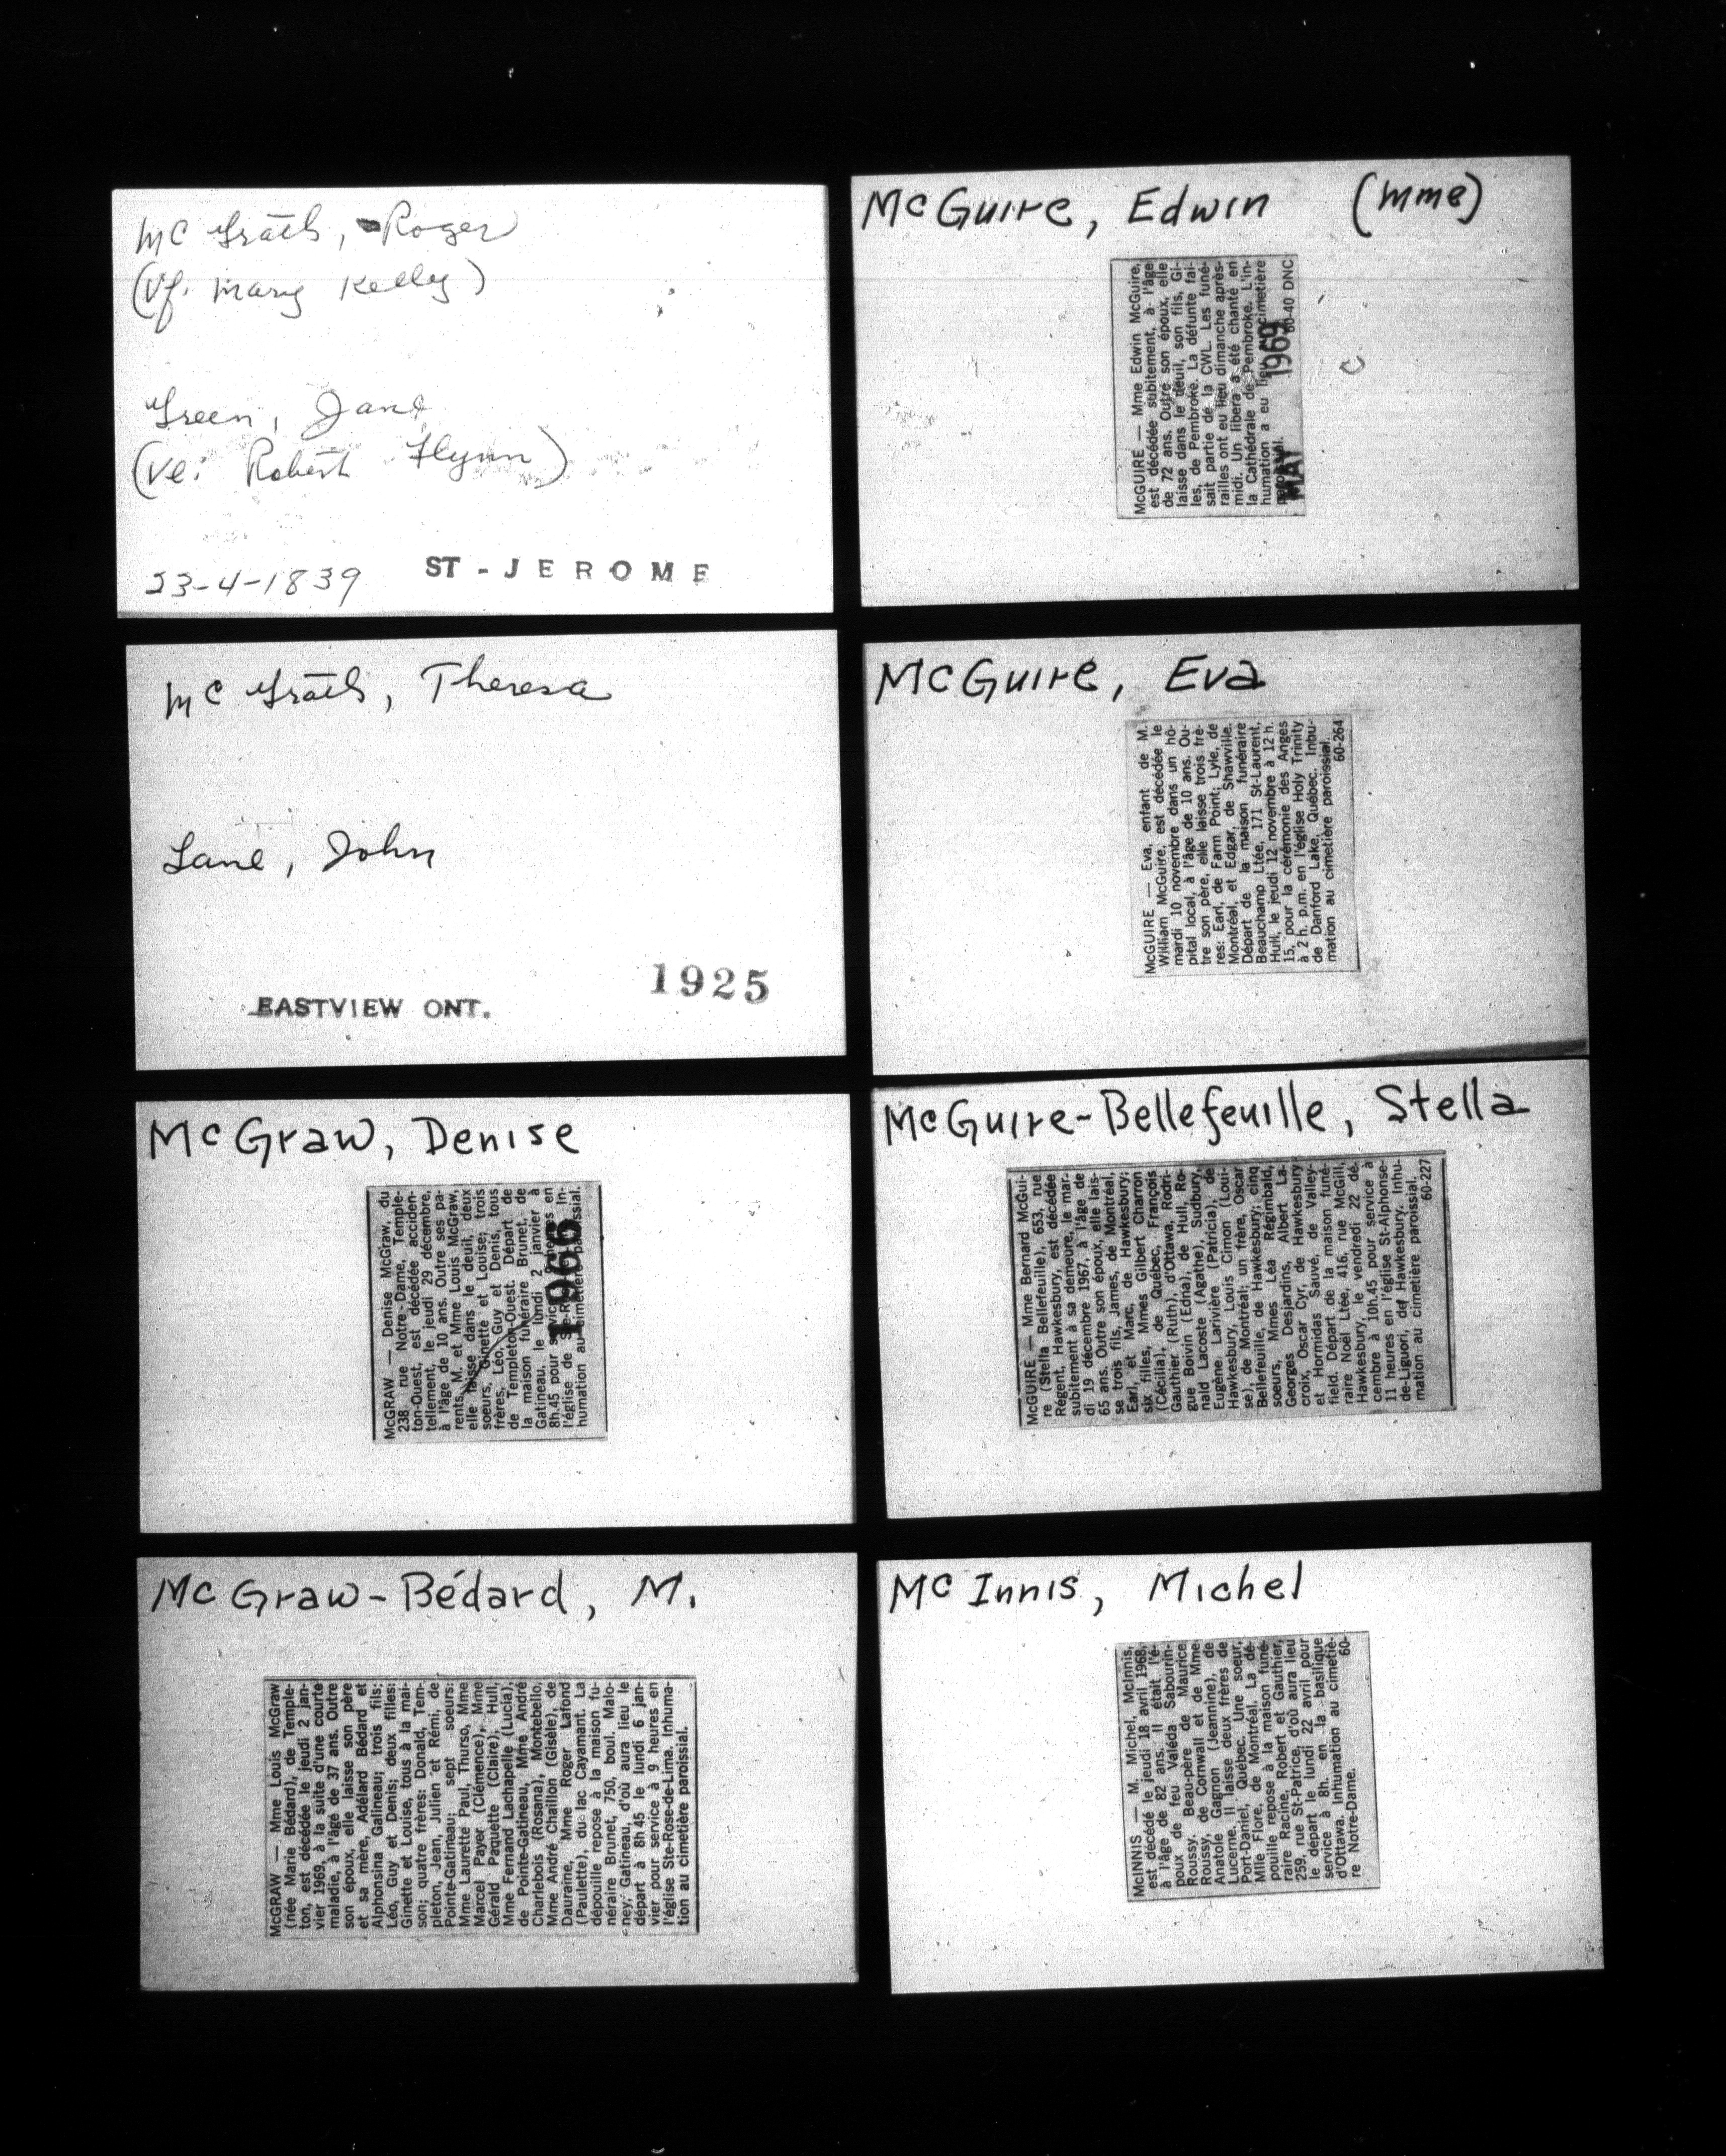 Mc Grath, Roger
(Vf. Mary Kelly)
Green, Jane
(Ve: Robert Flynn)
23-4-1839 ST-JEROME
Mc Grath, Theresa
Lane, John
EASTVIEW ONT. 1925
McGraw, Denise
McGRAW — Denise McGraw, du
238 rue Notre-Dame, Temple-
ton-Ouest, est décédée acciden-
tellement, le jeudi 29 décembre,
à l'âge de 10 ans. Outre ses pa-
rents, M. et Mme Louis McGraw,
elle laisse dans le deuil, deux
soeurs, Ginette et Louise; trois
frères, Léo, Guy et Denis, tous
de Templeton-Ouest. Départ de
la maison funéraire Brunet, de
Gatineau, le lundi 2 janvier à
8h.45 pour service 9 heures en
l'église de Ste-Rose. In-
humation au cimetière paroissial.
1966
McGraw-Bédard, M.
McGRAW — Mme Louis McGraw
(née Marie Bédard), de Temple-
ton, est décédée le jeudi 2 jan-
vier 1969, à la suite d'une courte
maladie, à l'âge de 37 ans. Outre
son époux, elle laisse son père
et sa mère, Adélard Bédard et
Alphonsina Galineau; trois fils:
Léo, Guy et Denis; deux filles:
Ginette et Louise, tous à la mai-
son; quatre frères: Donald, Tem-
pleton, Jean, Julien et Rémi, de
Pointe-Gatineau; sept soeurs:
Mme Laurette Paul, Thurso, Mme
Marcel Payer (Clémence), Mme
Gérald Paquette (Claire), Hull,
Mme Fernand Lachapelle (Lucia),
de Pointe-Gatineau, Mme André
Charlebois (Rosana), Montebello,
Mme André Chaillon (Gisèle), de
Dauraine, Mme Roger Lafond
(Paulette), du lac Cayamant. La
dépouille repose à la maison fu-
néraire Brunet, 750, boul. Malo-
ney, Gatineau, d'où aura lieu le
départ à 8h 45 le lundi 6 jan-
vier pour service à 9 heures en
l'église Ste-Rose-de-Lima. Inhuma-
tion au cimetière paroissial.
McGuire, Edwin (Mme)
McGUIRE — Mme Edwin McGuire,
est décédée subitement, à l'âge
de 72 ans. Outre son époux, elle
laisse dans le deuil, son fils, Gi-
les, de Pembroke. La défunte fai-
sait partie de la CWL. Les funé-
railles ont eu lieu dimanche après-
midi. Un libera a été chanté en
la Cathédrale de Pembroke. L'in-
humation a eu lieu au cimetière
60-40 DNC
MAI 1969
McGuire, Eva
McGUIRE — Eva, enfant de M.
William McGuire, est décédée le
mardi 10 novembre dans un hô-
pital local, à l'âge de 10 ans. Ou-
tre son père, elle laisse trois frè-
res: Earl, de Farm Point; Lyle, de
Montréal, et Edgar, de Shawville.
Départ de la maison funéraire
Beauchamp Ltée, 171 St-Laurent,
Hull, le jeudi 12 novembre à 12 h.
15, pour la cérémonie des Anges
à 2 h. p.m. en l'église Holy Trinity
de Danford Lake, Québec. Inhu-
mation au cimetière paroissial.
60-264
McGuire-Bellefeuille, Stella
McGUIRE — Mme Bernard McGui-
re (Stella Bellefeuille), 653, rue
Régent, Hawkesbury, est décédée
subitement à sa demeure, le mar-
di 19 décembre 1967, à l'âge de
65 ans. Outre son époux, elle lais-
se trois fils, James, de Montréal,
Earl, et Marc, de Hawkesbury;
six filles, Mmes Gilbert Charron
(Cécilia), de Québec, François
Gauthier (Ruth), d'Ottawa, Rodri-
gue Boivin (Edna), de Hull, Ro-
nald Lacoste (Agathe), Sudbury,
Eugène Larivière (Patricia), de
Hawkesbury, Louis Cimon (Loui-
se), de Montréal; un frère, Oscar
Bellefeuille, de Hawkesbury; cinq
soeurs, Mmes Léa Régimbald,
Georges Desjardins, Albert La-
croix, Oscar Cyr, de Hawkesbury
et Hormidas Sauvé, de Valley-
field. Départ de la maison funé-
raire Noël Ltée, 416, rue McGill,
Hawkesbury, le vendredi 22 dé-
cembre à 10h.45 pour service à
11 heures en l'église St-Alphonse-
de-Liguori, de Hawkesbury. Inhu-
mation au cimetière paroissial.
60-227
McInnis, Michel
McINNIS — M. Michel, McInnis,
est décédé le jeudi 18 avril 1968,
à l'âge de 82 ans. Il était l'é-
poux de feu Valéda Sabourin-
Roussy. Beau-père de Maurice
Roussy, de Cornwall et de Mme
Anatole Gagnon (Jeannine), de
Lucerne. Il laisse deux frères de
Port-Daniel, Québec. Une soeur,
Mlle Flore, de Montréal. La dé-
pouille repose à la maison funé-
raire Racine, Robert et Gauthier,
259, rue St-Patrice, d'où aura lieu
le départ le lundi 22 avril pour
service à 8h. en la basilique
d'Ottawa. Inhumation au cimetiè-
re Notre-Dame. 60-